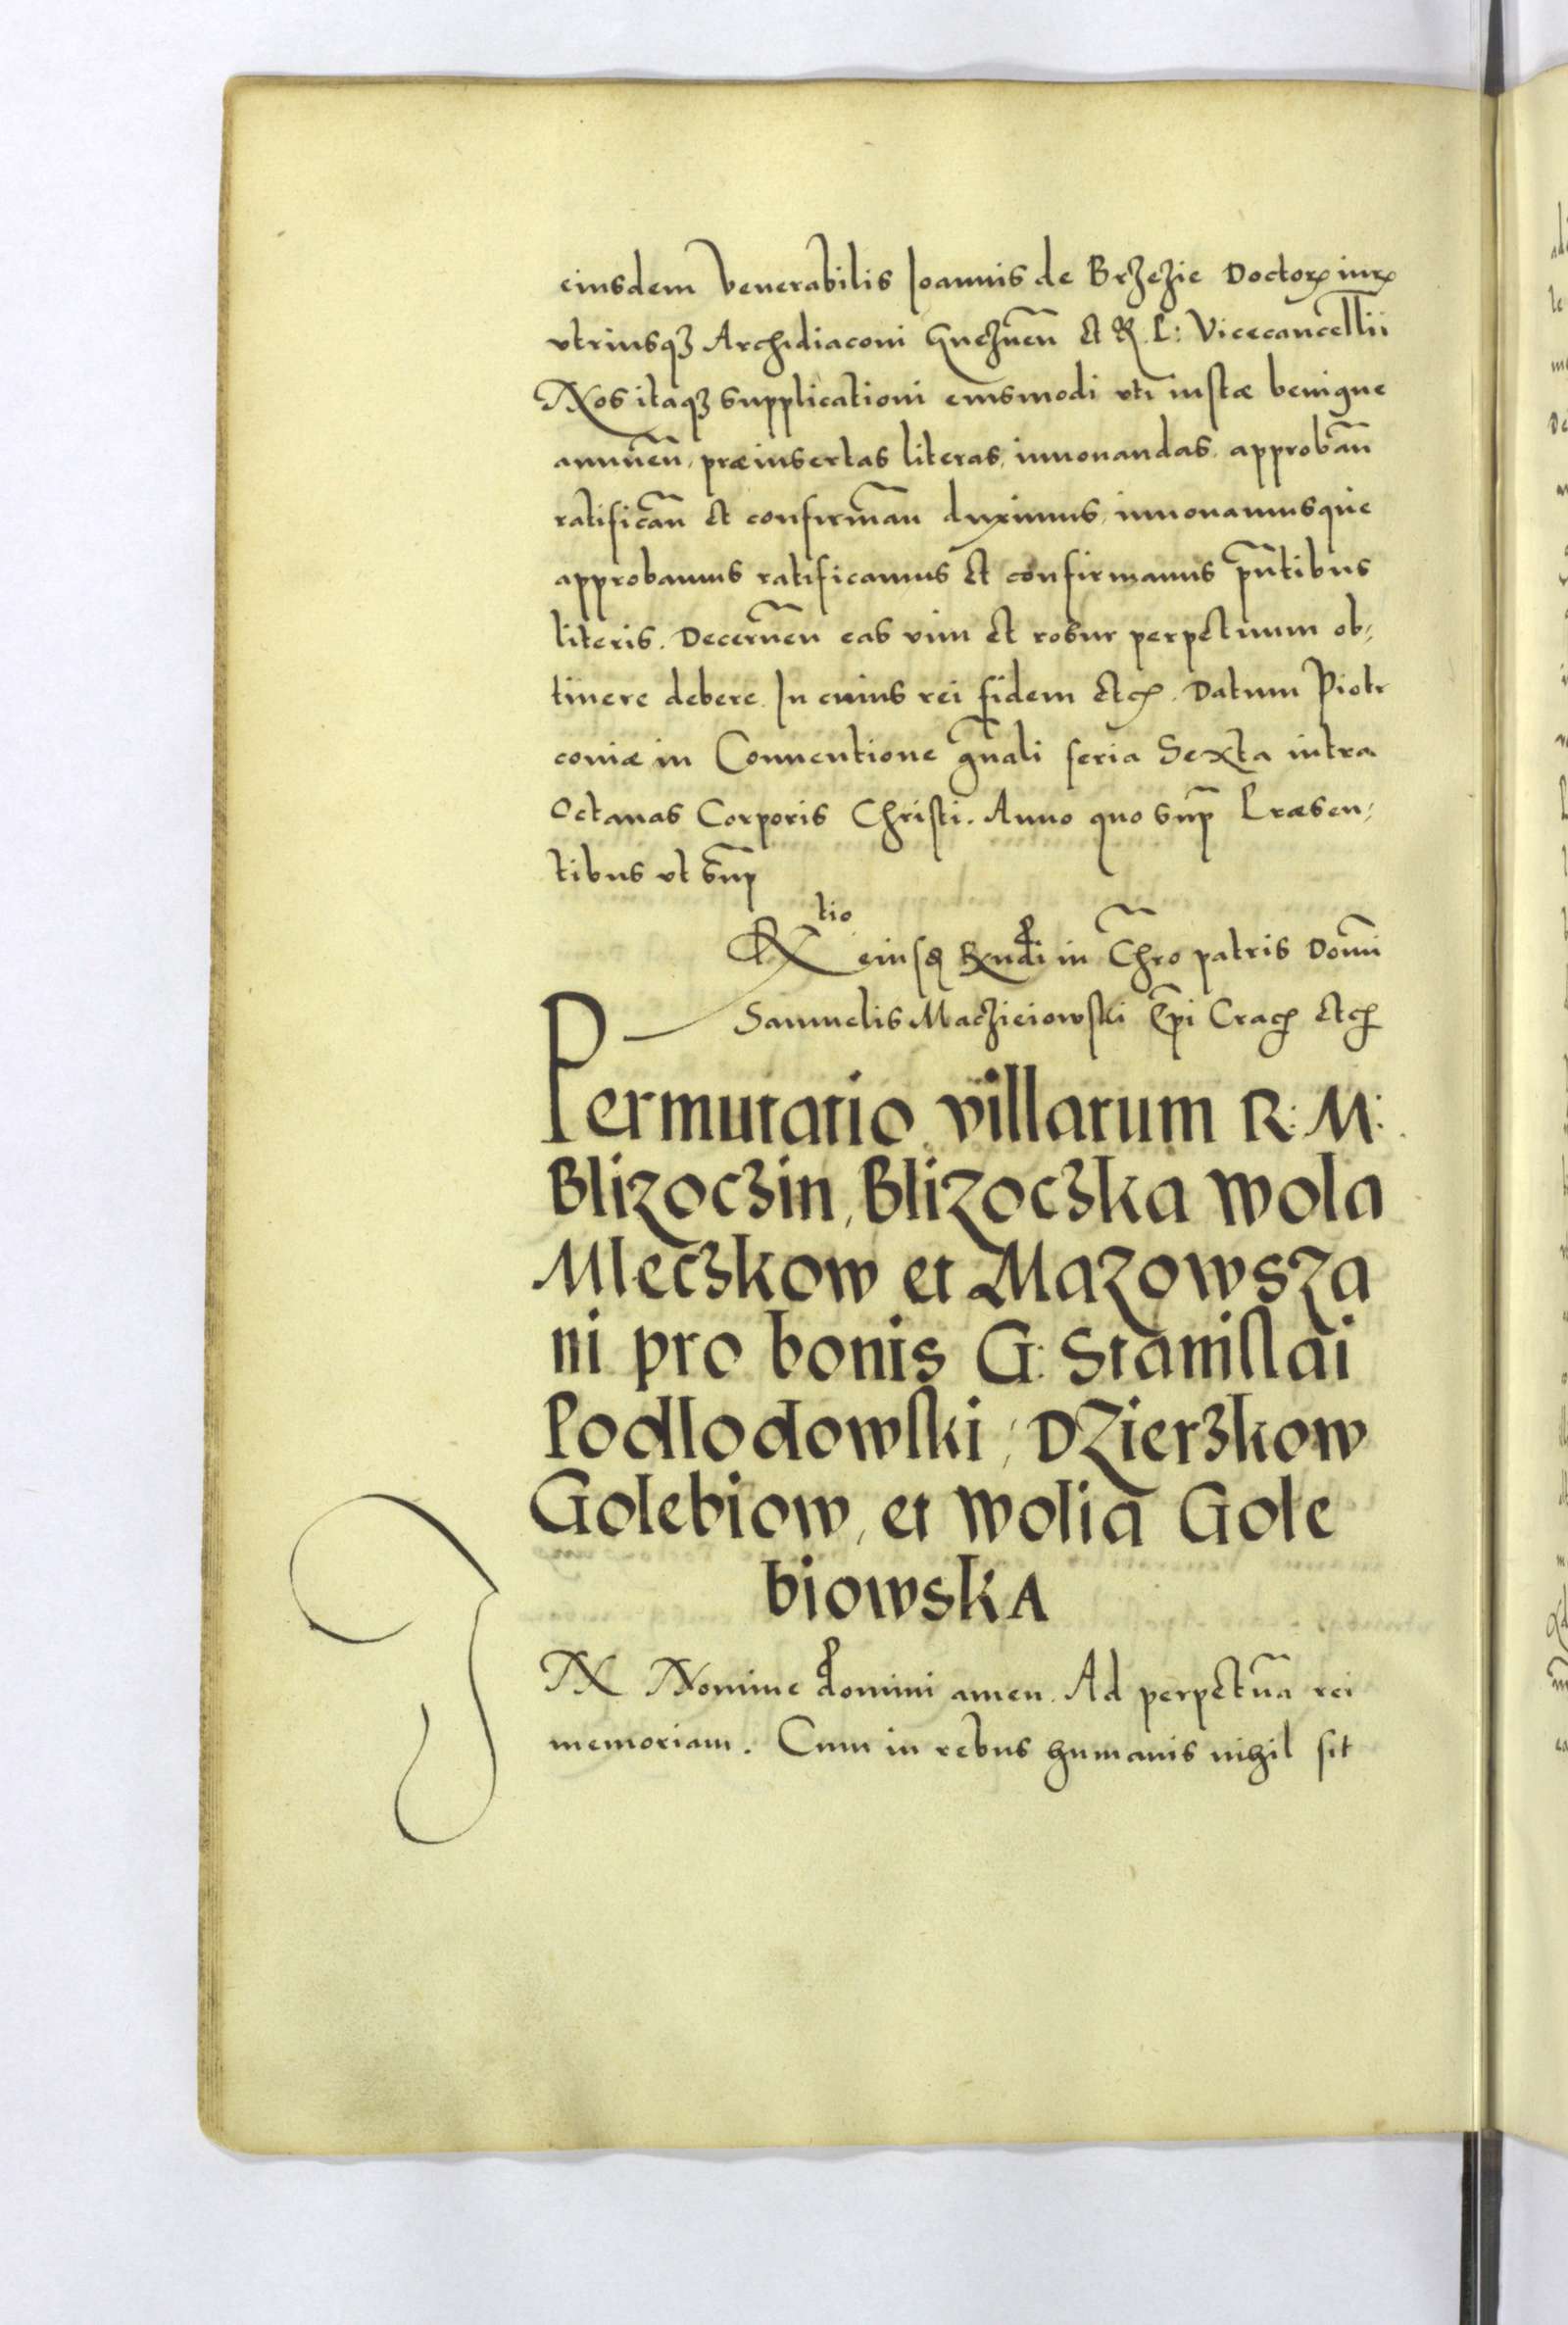 eiusdem Venerabilis Ioannis de BrzeZie Doctoꝝ iurꝭ
vtriusqꝫ Archidiaconi Gneznen̄ et R. P: Vicecancellii
Nos itaqꝫ supplicationi eiusmodi vti iustæ benigne
annuen̄, præinsertas literas, innouandas, approban̄
ratifican̄ et confirman̄ duximus, innouamusque
approbamus ratificamus et confirmamus pn̄tibus
literis. Decernen̄ eas vim et robur perpetuum ob,
tinere debere. In cuius rei fidem etcꝭ. Datum Piotr
coniæ in Conuentione gn̄ali feria Sexta intra
Octauas Corporis Christi. Anno quo sup̄ Præsen,
tibus vt sup̄
R tio eiusꝺ Rndi in Chr̄o patris Domī
Samuelis Maczieiowski Ep̄i Cracꝭ etcꝭ
Permutatio villarum R: M:
Blizocʒin, Blizocʒka wola
Mlecʒkow et Mazowsza
ni pro bonis G: Stanislai
Podlodowski, Dzierʒkow
Golebiow, et wolia Gole
biowska
IN Nomine domini amen. Ad perpetuā rei
memoriam. Cum in rebus humanis nihil sit